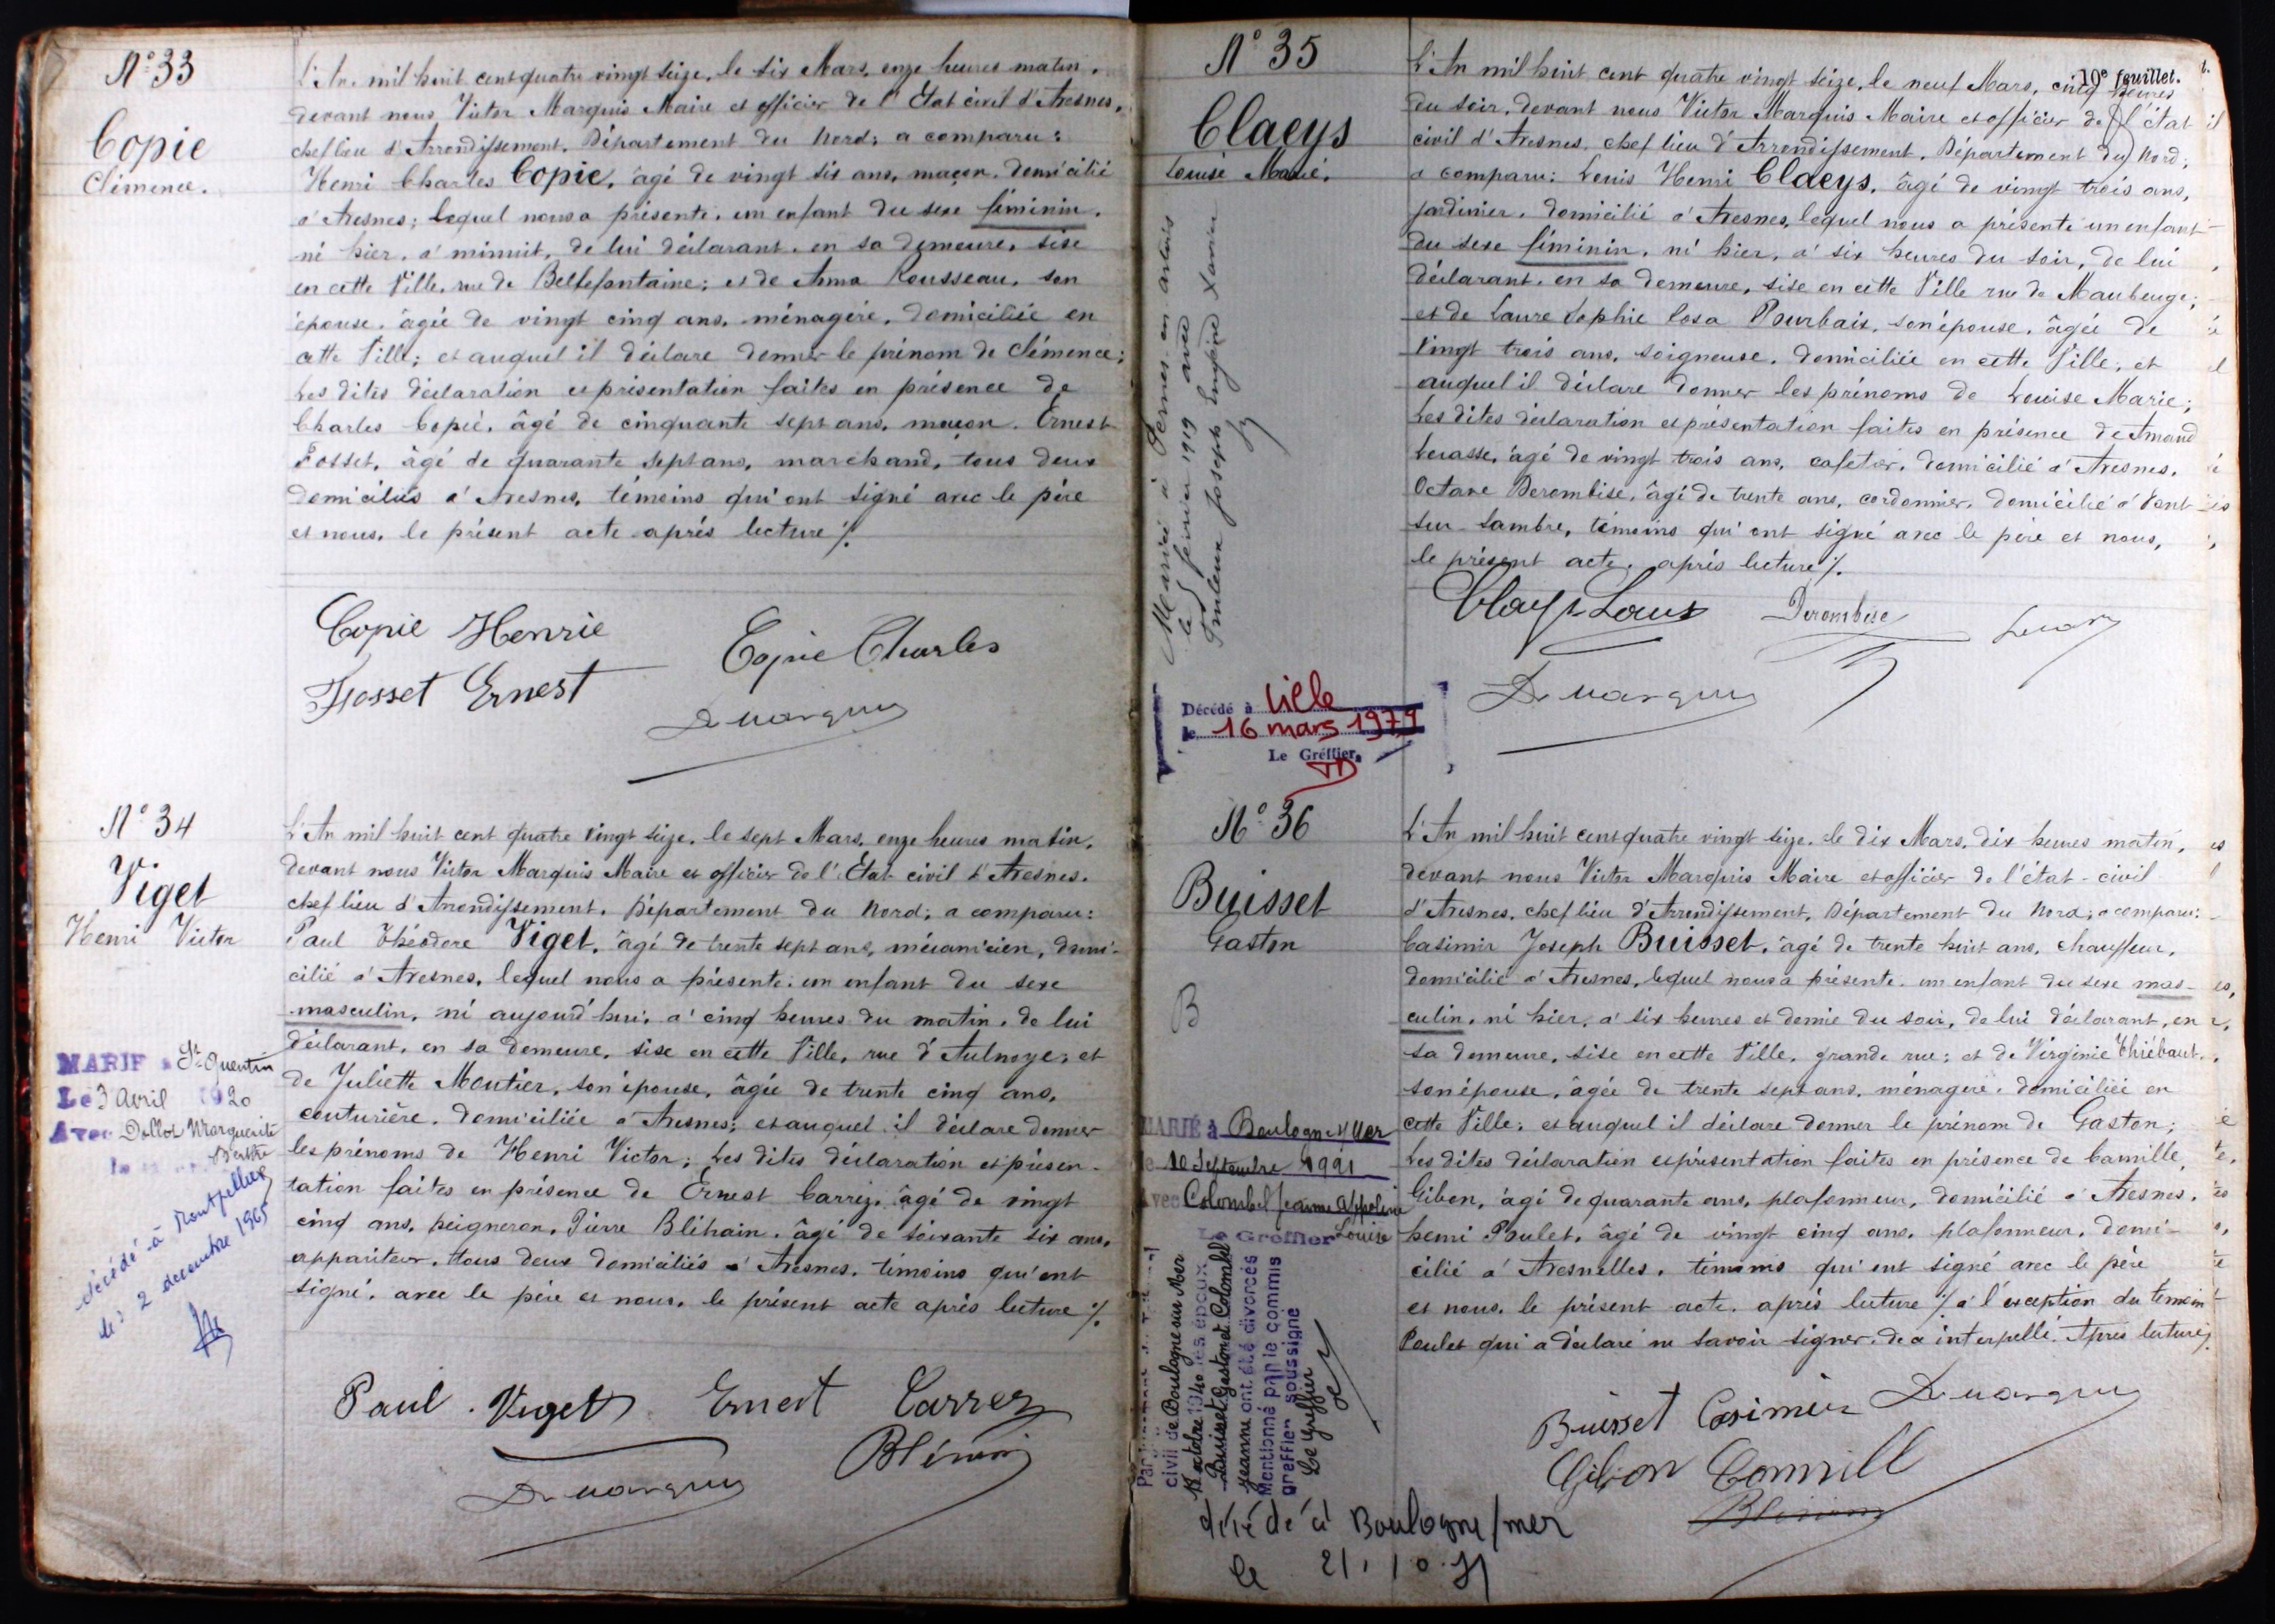 N° 33
Copie
Clémence.
L'An mil huit cent quatre vingt seize, le six Mars, onze heures matin,
devant nous Victor Marquis Maire et officier de l'Etat civil d'Avesnes,
chef lieu d'Arrondissement, Département du Nord; a comparu:
Henri Charles Copie, âgé de vingt six ans, maçon, domicilié
à Avesnes; lequel nous a présenté un enfant du sexe féminin,
né hier, à minuit, de lui déclarant, en sa demeure, sise
en cette Ville, rue de Bellefontaine; et de Anna Rousseau, son
épouse, âgée de vingt cinq ans, ménagère, domiciliée en
cette Ville; et auquel il déclare donner le prénom de Clémence;
Les dites déclaration et présentation faites en présence de
Charles Copie, âgé de cinquante sept ans, maçon, Ernest
Fosset, âgé de quarante sept ans, marchand, tous deux
domiciliés à Avesnes, témoins qui ont signé avec le père
et nous, le présent acte après lecture ./.
Copie Henrie
Copie Charles
Fosset Ernest
Dr Marquis
N° 34
Viget
Henri Victor
L'An mil huit cent quatre vingt seize, le sept Mars, onze heures matin,
devant nous Victor Marquis Maire et officier de l'Etat civil d'Avesnes,
chef lieu d'Arrondissement, Département du Nord, a comparu:
Paul Théodore Viget, âgé de trente sept ans, mécanicien, domi-
cilié à Avesnes, lequel nous a présenté un enfant du sexe
masculin, né aujourd'hui, à cinq heures du matin, de lui
déclarant, en sa demeure, sise en cette Ville, rue d'Aulnoye; et
de Juliette Moutier, son épouse, âgée de trente cinq ans,
couturière, domiciliée à Avesnes; et auquel il déclare donner
les prénoms de Henri Victor; Les dites déclaration et présen-
tation faites en présence de Ernest Carrez, âgé de vingt
cinq ans, peigneron, Pierre Blihain, âgé de soixante six ans,
appariteur, tous deux domiciliés à Avesnes, témoins qui ont
signé, avec le père et nous, le présent acte après lecture ./.
MARIE à St Quentin
Le 3 Avril 1920
Avec Dollot Marguerite
Berthe
décédé à Montpellier
le 2 decembre 1965
Paul Viget Ernest Carrez
Dr Marquis
N° 35
Claeys
Louise Marie.
10e feuillet.
L'An mil huit cent quatre vingt seize, le neuf Mars, cinq heures
du soir, devant nous Victor Marquis Maire et officier de l'état
civil d'Avesnes, chef lieu d'Arrondissement, Département du Nord;
a comparu: Louis Henri Claeys, âgé de vingt trois ans,
jardinier, domicilié à Avesnes, lequel nous a présenté un enfant
du sexe féminin, né hier, à six heures du soir, de lui
déclarant, en sa demeure, sise en cette Ville rue de Maubeuge;
et de Laure Sophie Rosa Pourbaix, son épouse, âgée de
vingt trois ans, soigneuse, domiciliée en cette Ville, et
auquel il déclare donner les prénoms de Louise Marie;
Les dites déclaration et présentation faites en présence de Amand
âgé de vingt trois ans, cafetier, domicilié à Avesnes,
Octave Derombise, âgé de trente ans, cordonnier, domicilié à Pont
sur Sambre, témoins qui ont signé avec le père et nous,
le présent acte, après lecture ./.
Mariée à Pernes en artois
le février 1919 avec
Joseph Xavier
Claeys Louis Derombise
Dr Marquis
Décédé à Lille
le 16 mars 1979
Le Greffier,
N° 36
Buisset
Gaston
B
L'An mil huit cent quatre vingt seize, le dix Mars, dix heures matin,
devant nous Victor Marquis Maire et officier de l'état-civil
d'Avesnes, chef lieu d'Arrondissement, Département du Nord; a comparu:
Casimir Joseph Buisset, âgé de trente huit ans, chauffeur,
domicilié à Avesnes, lequel nous a présenté un enfant du sexe mas-
culin, né hier, à six heures et demie du soir, de lui déclarant, en
sa demeure, sise en cette Ville, grande rue; et de Virginie Thiébaut,
son épouse, âgée de trente sept ans, ménagère, domiciliée en
cette Ville; et auquel il déclare donner le prénom de Gaston;
Les dites déclaration et présentation faites en présence de Camille
Gibon, âgé de quarante ans, plafonneur, domicilié à Avesnes,
henri Poulet, âgé de vingt cinq ans, plafonneur, domi-
cilié à Avesnelles, témoins qui ont signé avec le père
et nous, le présent acte, après lecture ./. à l'exception du témoin
Poulet qui a déclaré ne savoir signer, de ce interpellé. Après lecture ./.
MARIÉ à Boulogne s/ Mer
le 10 Septembre 1921
Avec Colombel Jeanne Appoline
Louise
Le Greffier
civil de Boulogne sur Mer
18 octobre 1940 les époux
Buisset Gaston et Colombel
Jeanne ont été divorcés
Mentionné par le commis
greffier soussigné
Le Greffier
Buisset Casimir Dr Marquis
Gibon Camille
décédé à Boulogne/mer
le 21.10.71